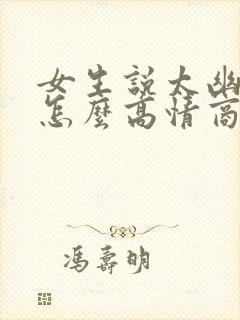 女生說太幽
怎麼高情商
馮壽明